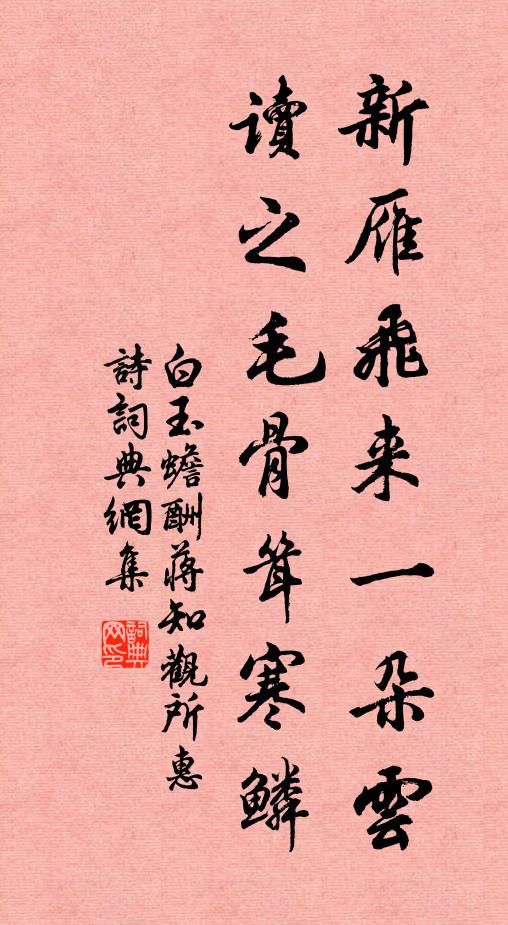 新雁飛来一朵雲
讀之毛骨聳寒鱗
白玉蟾酬蔣知觀所惠
詩詞典網集
詞典网印